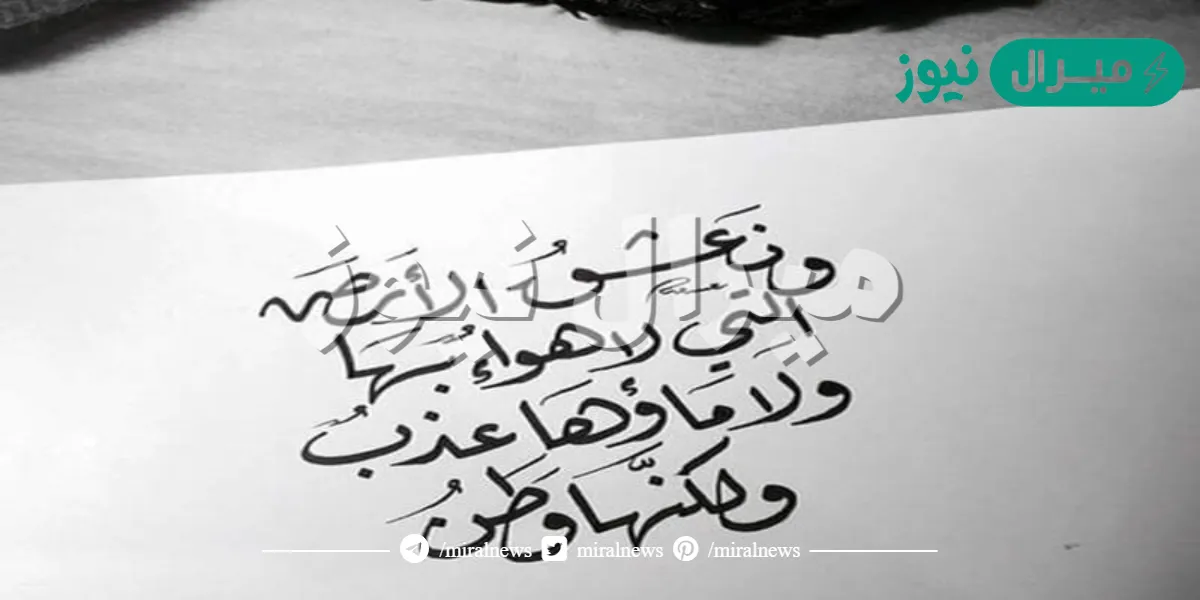 ميرال نيوز
ونَعشقُ الأرضَ
التي لا هواءُ بهَا
ولا مَاؤهَا عذبُ
ولكنّها وَطنُ
/miralnews miralnews /miralnews